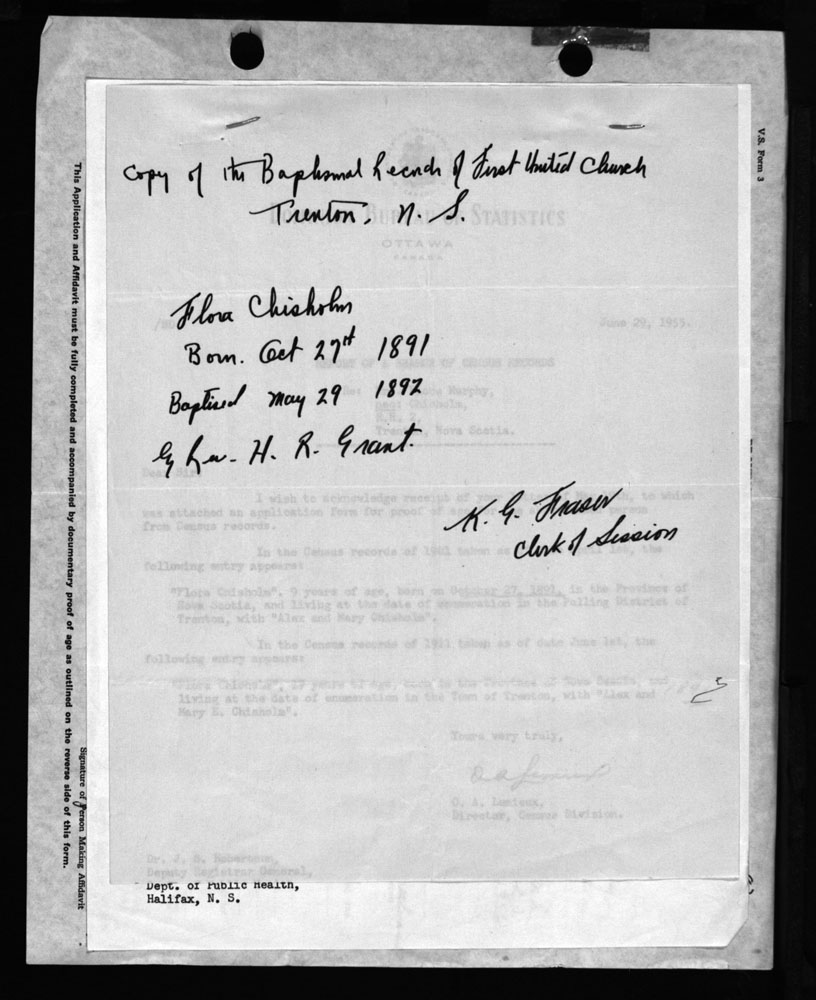 V.S. Form 3
Copy of the Baptismal Records of First United Church
Trenton, N. S.
BUREAU OF STATISTICS
OTTAWA
CANADA
Flora Chisholm
Born. Oct 27th 1891
Baptised May 29 1892
By Rev. H. R. Grant.
K. G. Fraser
Clerk of Session
June 29, 1955.
OF CENSUS RECORDS
Murphy,
Chisholm,
Nova Scotia.
I wish to acknowledge receipt of your to which
was attached an application form for proof of
from Census records.
In the Census records of 1901 taken as the
following entry appears:
"Flora Chisholm", 9 years of age, born on October 27, 1891, in the Province of
Nova Scotia, and living at the date of enumeration in the Polling District of
Trenton, with "Alex and Mary Chisholm".
In the Census records of 1911 taken as of date June 1st, the
following entry appears:
"Flora Chisholm", years of age, born in the Province of Nova Scotia, and
living at the date of enumeration in the Town of Trenton, with "Alex and
Mary E. Chisholm".
Yours very truly,
O. A. Lemieux,
Director, Census Division.
Dr. J. S. Robertson,
Deputy Registrar General,
Dept. of Public Health,
Halifax, N. S.
This Application and Affidavit must be fully completed and accompanied by documentary proof of age as outlined on the reverse side of this form.
Signature of Person Making Affidavit